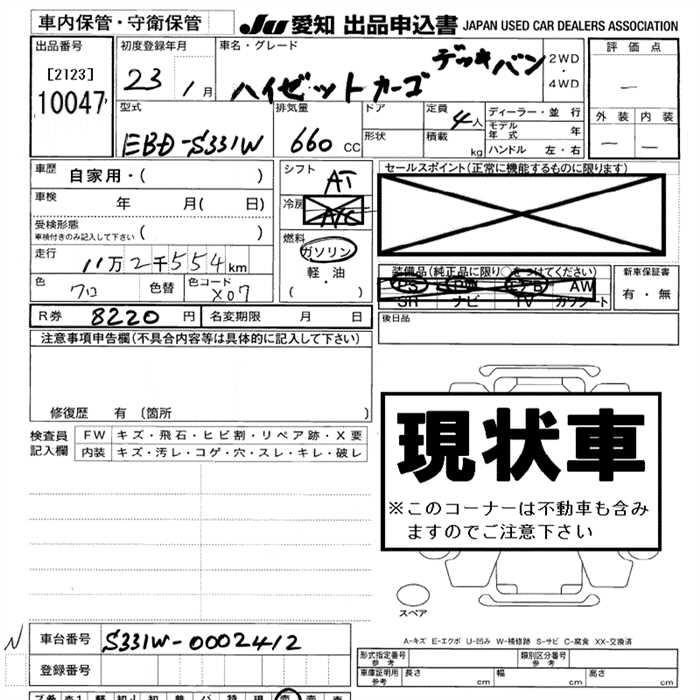 車内保管・守衛保管 JU 愛知 出品申込書 JAPAN USED CAR DEALERS ASSOCIATION
出品番号 初度登録年月 車名・グレード 評価点
[2123] 23 1月 ハイゼットカーゴ デッキバン 2WD・4WD —
10047
型式 排気量 ドア 定員 ディーラー・並行 外装 内装
EBD-S331W 660 CC 形状 4人 積載 kg モデル年式 年 — —
ハンドル 左・右
車歴 自家用・( ) シフト AT セールスポイント(正常に機能するものに限ります)
車検 年 月( 日) 冷房 A/C
受検形態 ( )
車検付きのみ記入して下さい
燃料 ガソリン 軽・油 ( ・ )
走行 11万2千554km
装備品(純正品に限り〇をつけてください) 新車保証書
色 クロ 色替 色コード X07 PS PW エアB AW 有・無
SR ナビ TV カワシート
R券 8220円 名変期限 月 日 後日品
注意事項申告欄(不具合内容等は具体的に記入して下さい)
修復歴 有(箇所 )
現状車
※このコーナーは不動車も含み
ますのでご注意下さい
検査員記入欄 FW キズ・飛石・ヒビ割・リペア跡・X要
内装 キズ・汚レ・コゲ・穴・スレ・キレ・破レ
スペア
A-キズ E-エクボ U-凹み W-補修跡 S-サビ C-腐食 XX-交換済
N 車台番号 S331W-0002412
形式指定番号 参考 類別区分番号 参考
登録番号 車庫証明用 参考 長さ cm 幅 cm 高さ cm